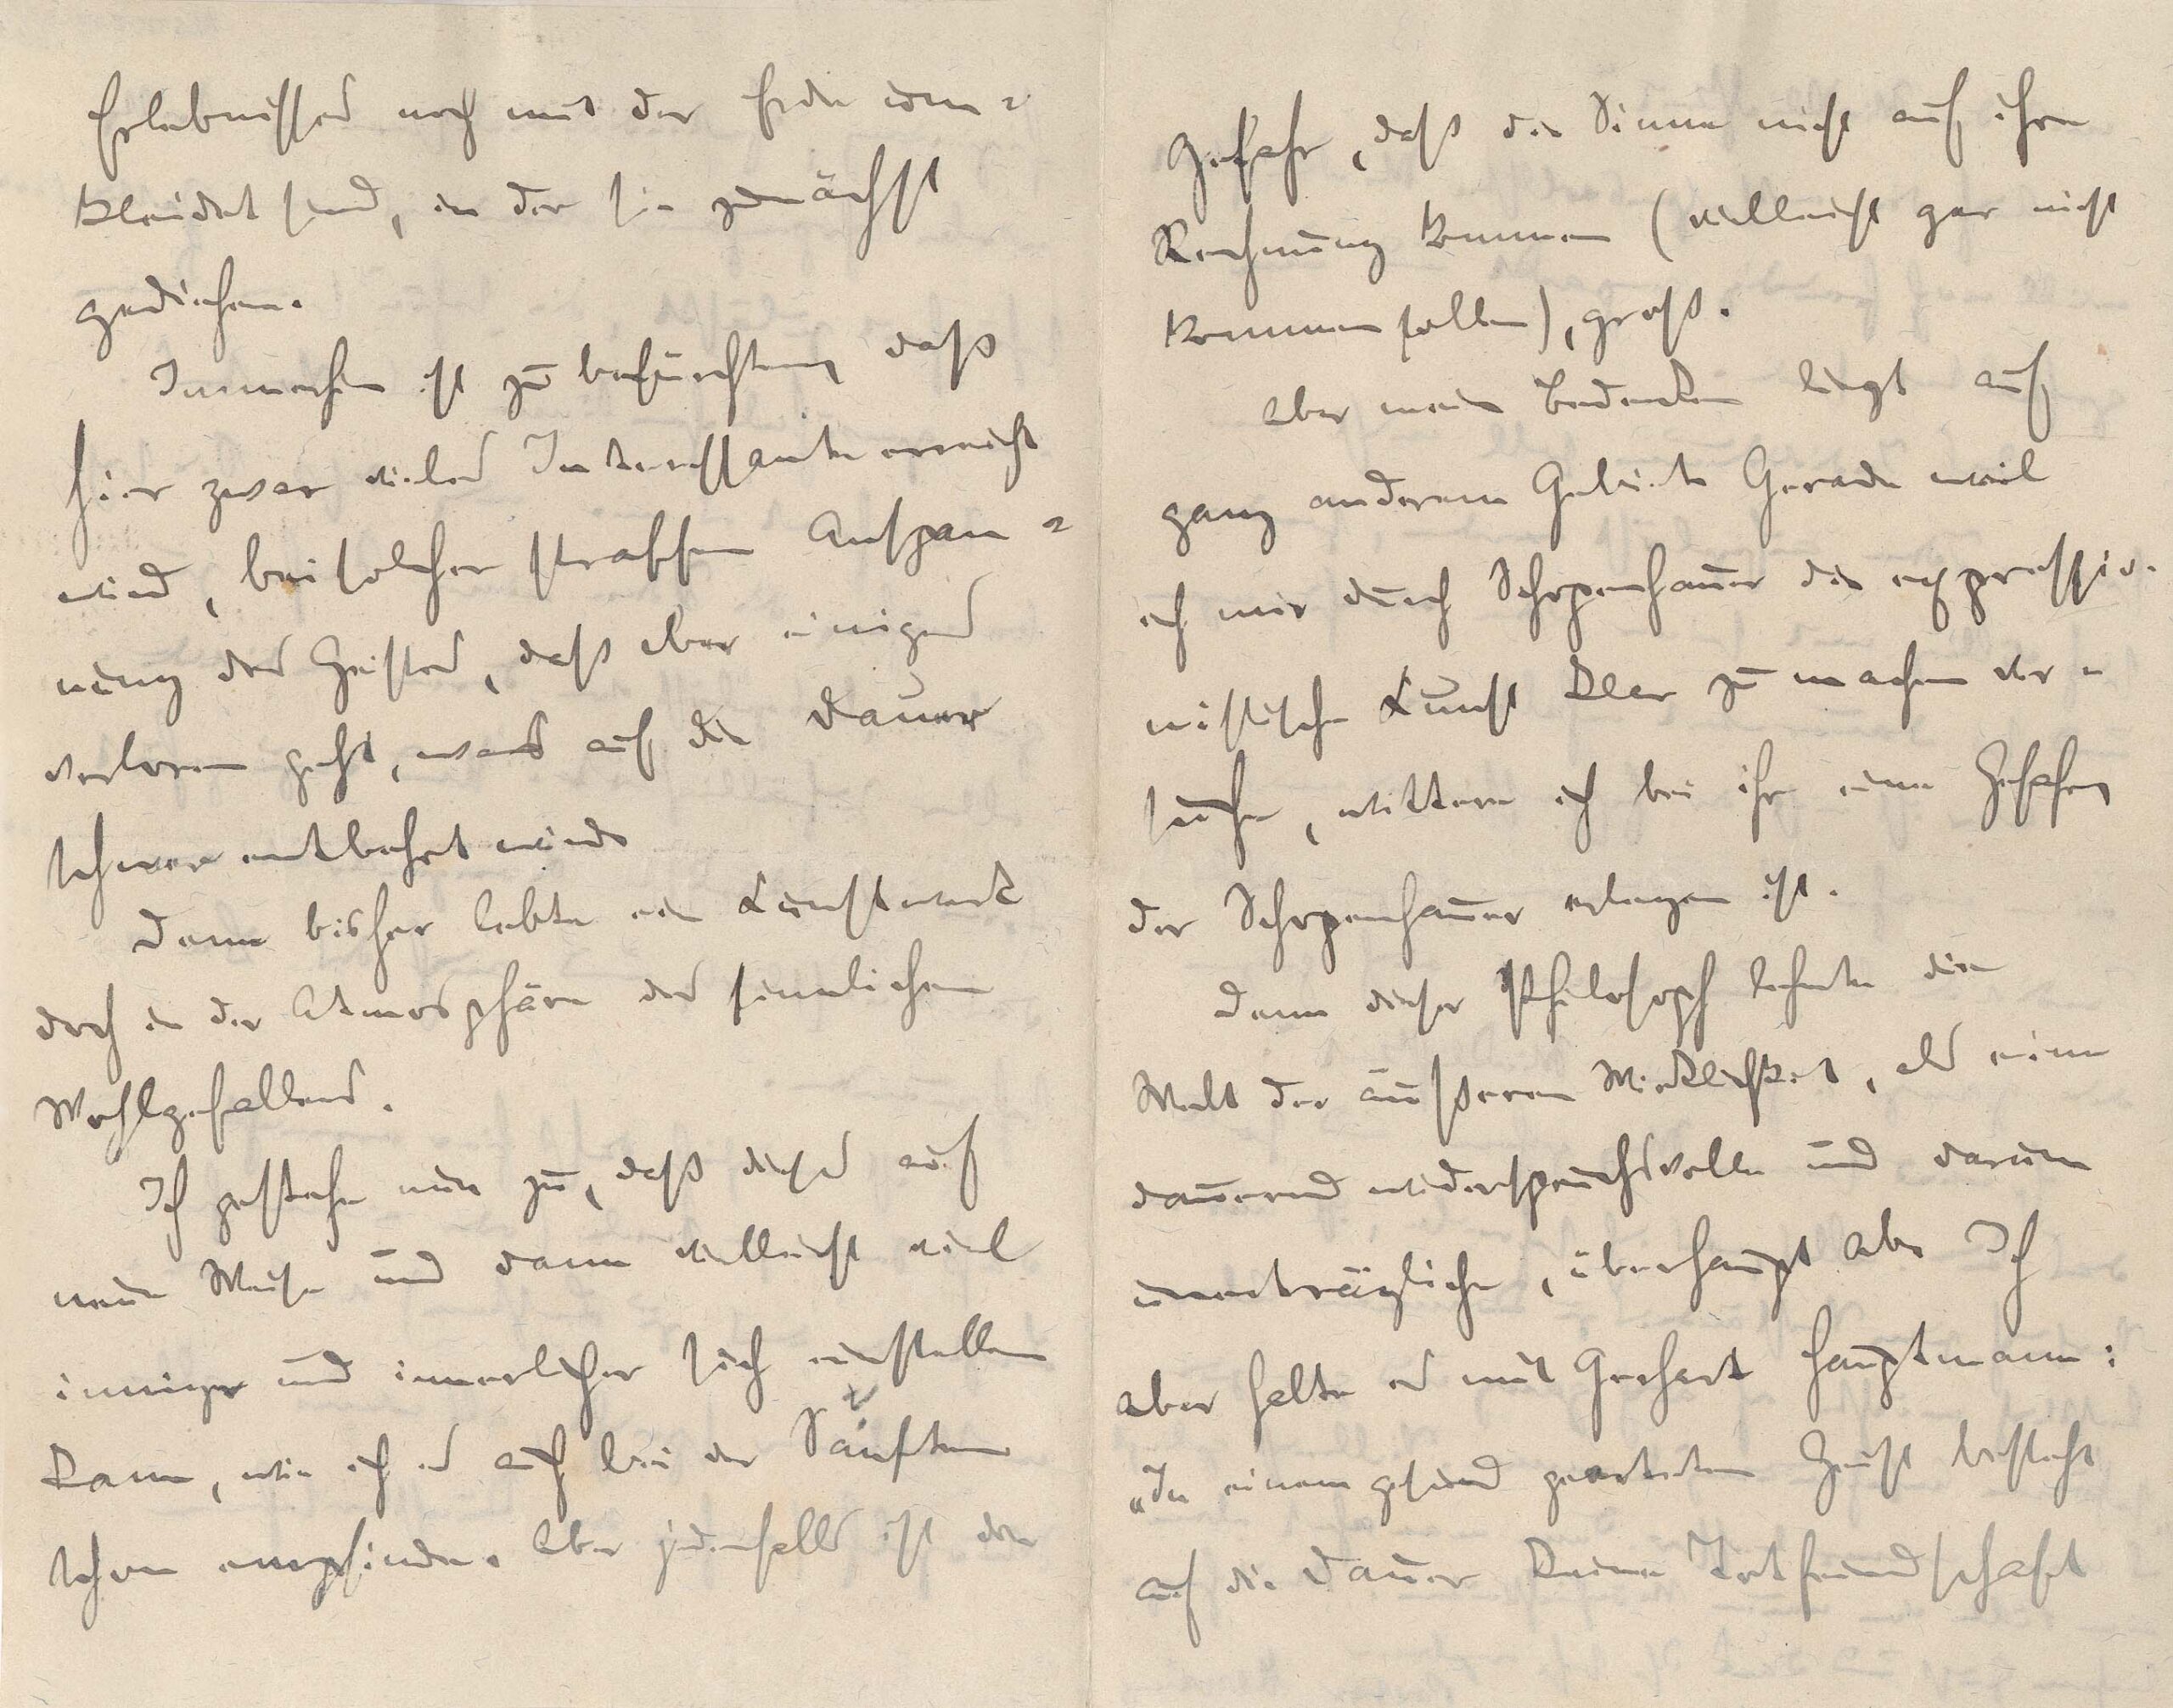 Erlebnisses noch mit der Erde um-
kleidet sind, in der sie zunächst
gediehen.
Immerhin ist zu befürchten, daß
hier zwar vieles Interessante erreicht
wird, bei solcher straffen Anspan-
nung des Geistes, daß aber einiges
verloren geht, was auf die Dauer
schwer entbehrt wird.
Denn bisher lebte ein Kunstwerk
doch in der Atmosphäre des sinnlichen
Wohlgefallens.
Ich gestehe nun zu, daß dieses auf
neue Weise und dann vielleicht viel
inniger und innerlicher sich einstellen
kann, wie ich es auch bei der
schon empfinde. Aber jedenfalls ist die
Gefahr, daß die Sinne nicht auf ihre
Rechnung kommen (vielleicht gar nicht
kommen sollen), groß.
Aber mein Bedenken liegt auf
ganz anderem Gebiete Gerade weil
ich mir durch Schopenhauer die expressio-
nistische Kunst klar zu machen ver-
suche, wittere ich bei ihr eine Gefahr,
der Schopenhauer erlegen ist.
Denn dieser Philosoph lehnte die
Welt der äußeren Wirklichkeit, als eine
dauernd widerspruchsvolle und darum
unerträgliche, überhaupt ab. Ich
aber halte es mit Gerhart Hauptmann:
„In einem gesund gearteten Geist besteht
auf die Dauer keine Todfeindschaft